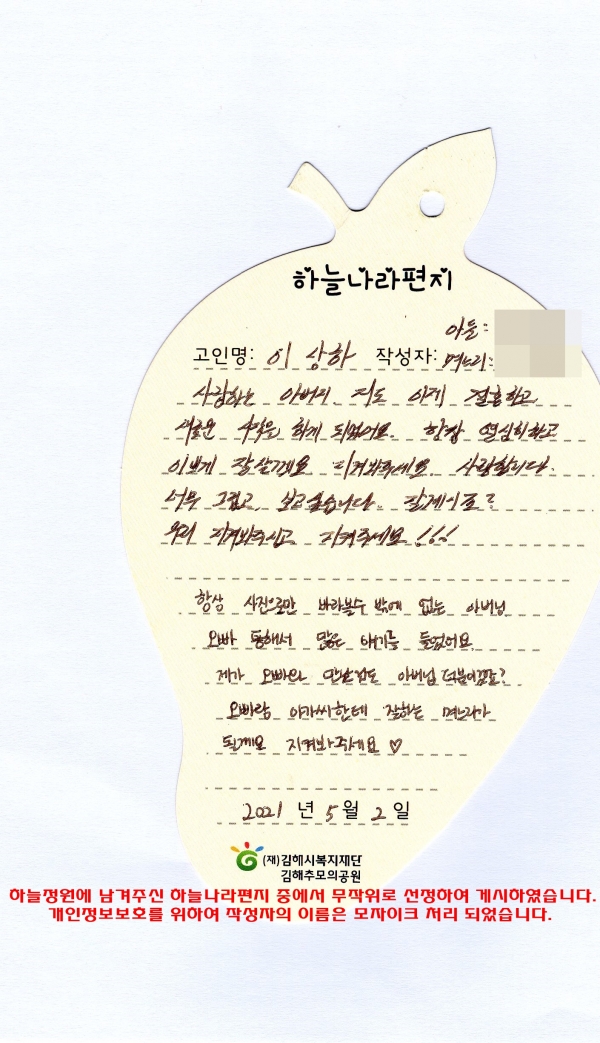 하늘나라편지
아들:
고인명: 이 상하 작성자: 며느리:
사랑하는 아버지 저도 이제 결혼하고
새로운 시작을 하게 되었어요. 항상 열심히하고
이쁘게 잘살게요 지켜봐주세요 사랑합니다.
너무 그립고, 보고싶습니다. 잘계시죠?
우리 지켜봐주시고 지켜주세요!!!
항상 사진으로만 바라볼수 밖에 없는 아버님
오빠 통해서 많은 얘기를 들었어요
제가 오빠와 만난것도 아버님 덕분이겠죠?
오빠랑 아가씨한테 잘하는 며느리가
될게요 지켜봐주세요 ♡
2021 년 5 월 2 일
(재)김해시복지재단
김해추모의공원
하늘정원에 남겨주신 하늘나라편지 중에서 무작위로 선정하여 게시하였습니다.
개인정보보호를 위하여 작성자의 이름은 모자이크 처리 되었습니다.